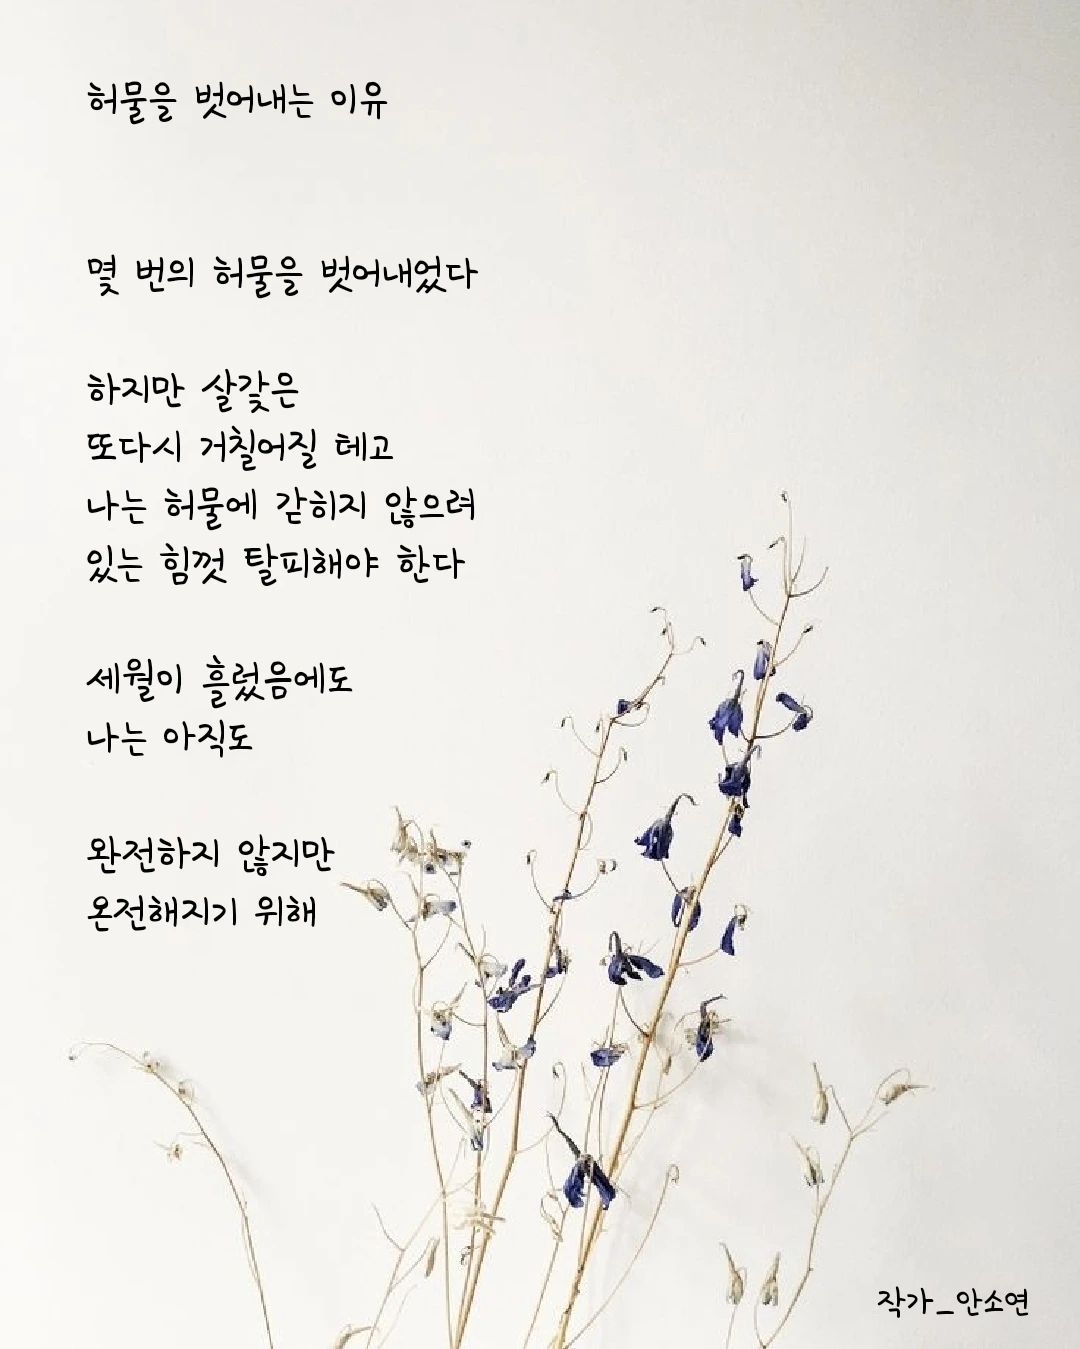 허물을 벗어내는 이유
몇 번의 허물을 벗어내었다
하지만 살갗은
또다시 거칠어질 테고
나는 허물에 갇히지 않으려
있는 힘껏 탈피해야 한다
세월이 흘렀음에도
나는 아직도
완전하지 않지만
온전해지기 위해
작가_안소연